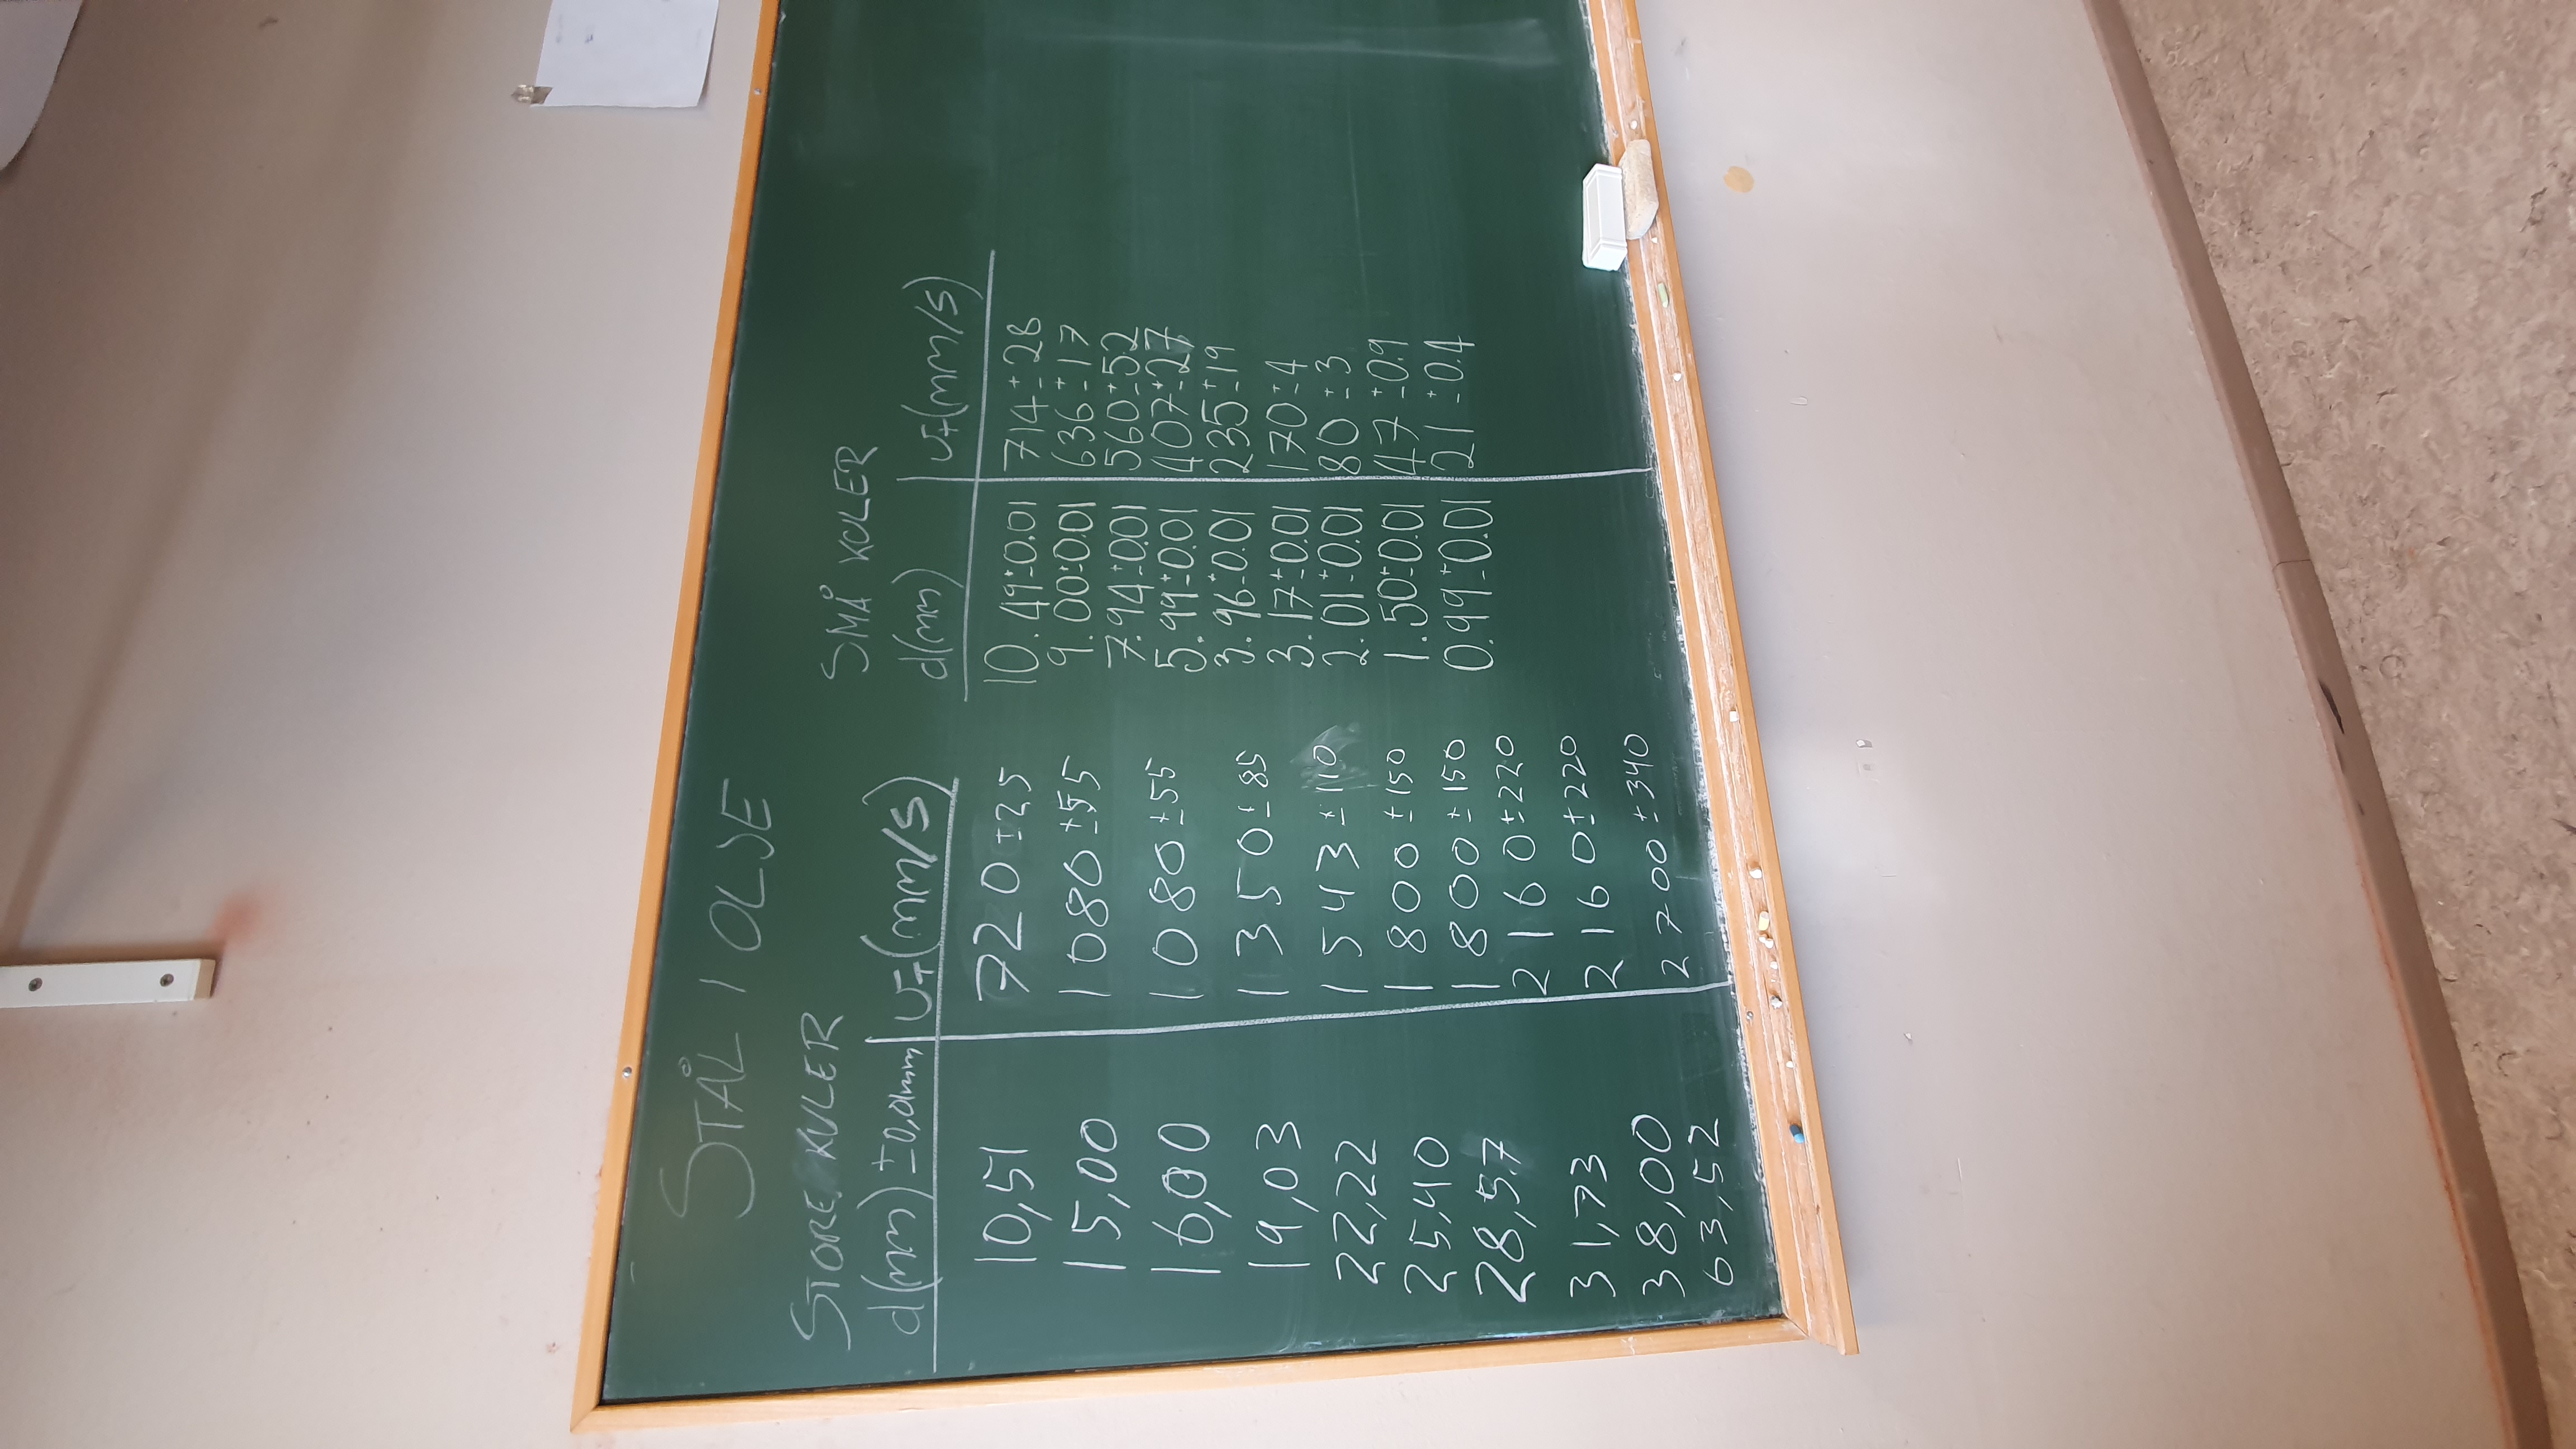 STÅL I OLJE
STORE KULER
d(mm) ±0,01mm υ_T(mm/s)
10,51 720 ±25
15,00 1080 ±55
16,00 1080 ±55
19,03 1350 ± 85
22,22 1543 ± 110
25,40 1800 ± 150
28,57 1800 ± 150
31,73 2160 ± 220
38,00 2160 ± 220
63,52 2700 ± 340
SMÅ KULER
d(mm) υ_T(mm/s)
10.49±0.01 714 ± 28
9.00±0.01 636 ± 17
7.94±0.01 560±52
5.99±0.01 407±27
3.96±0.01 235±19
3.17±0.01 170±4
2.01±0.01 80 ± 3
1.50±0.01 47 ±0.9
0.99±0.01 21 ±0.4